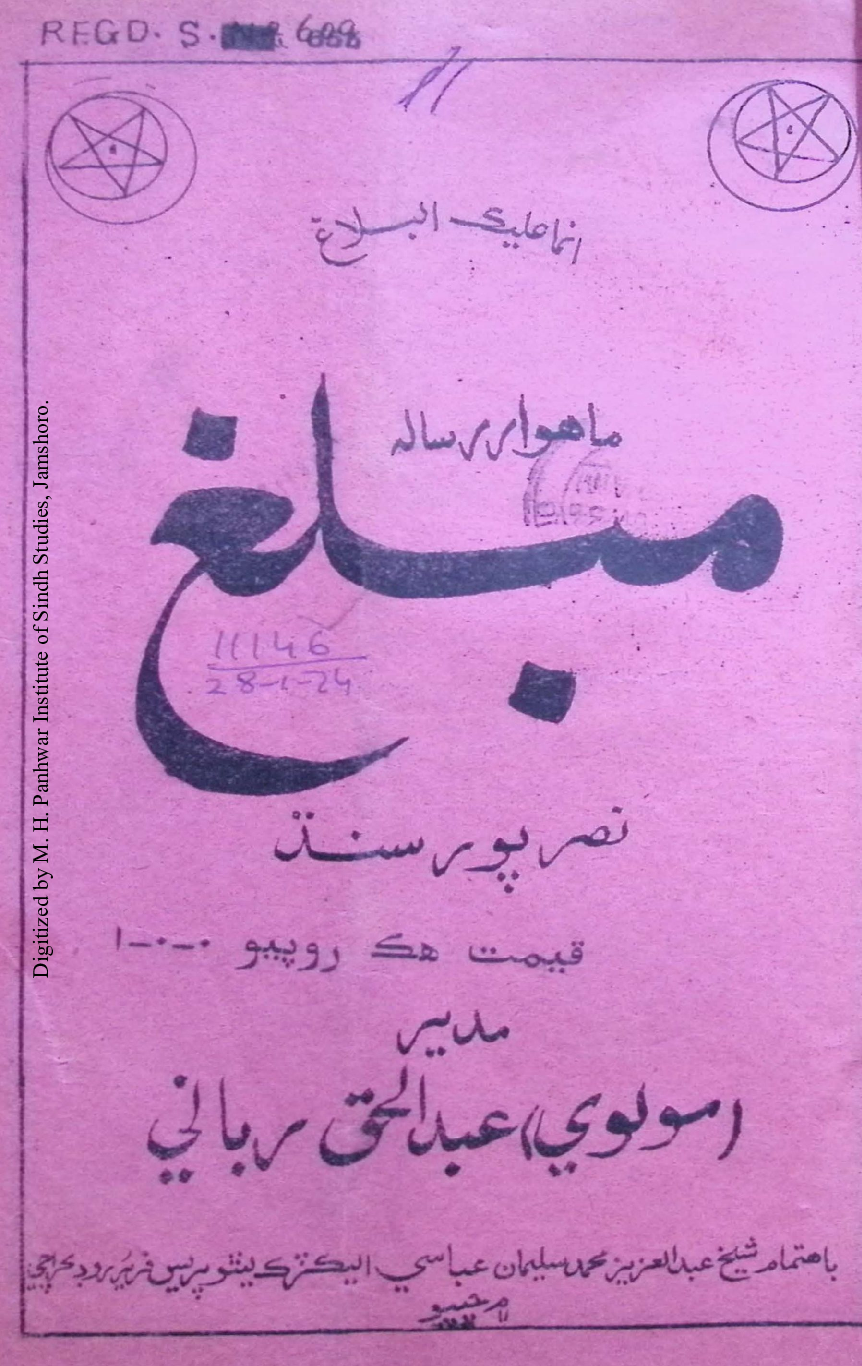 REGD. S.
انما عليك البلاغ
ماهوار رساله
مبلغ
11146
28-1-24
نصرپور سنڌ
قيمت هڪ روپيو ٠-٠-١
مدير
(مولوي) عبدالحق رباني
باهتمام شيخ عبدالعزيز محمد سليمان عباسي اليڪٽرڪ ليٿو پريس فريئر روڊ ڪراچي
Digitized by M. H. Panhwar Institute of Sindh Studies, Jamshoro.